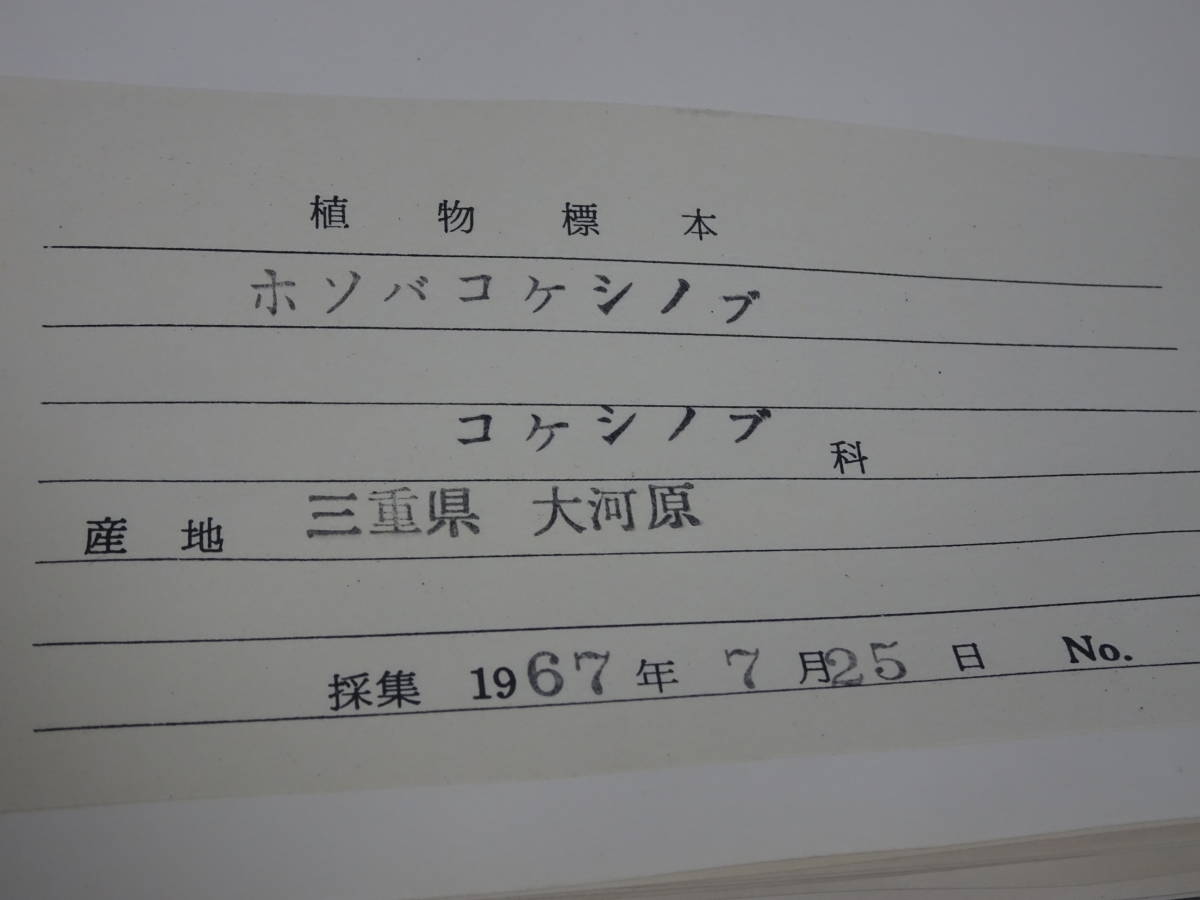 植物標本
ホソバコケシノブ
コケシノブ科
産地 三重県 大河原
採集 1967年 7月25日 No.